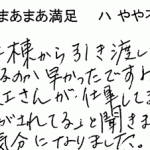 まあまあ満足　ハ やや
棟から引き渡し
るのか早かったですよ
工さんが、仕事してま
がされてる」と聞きま
気分になりました。